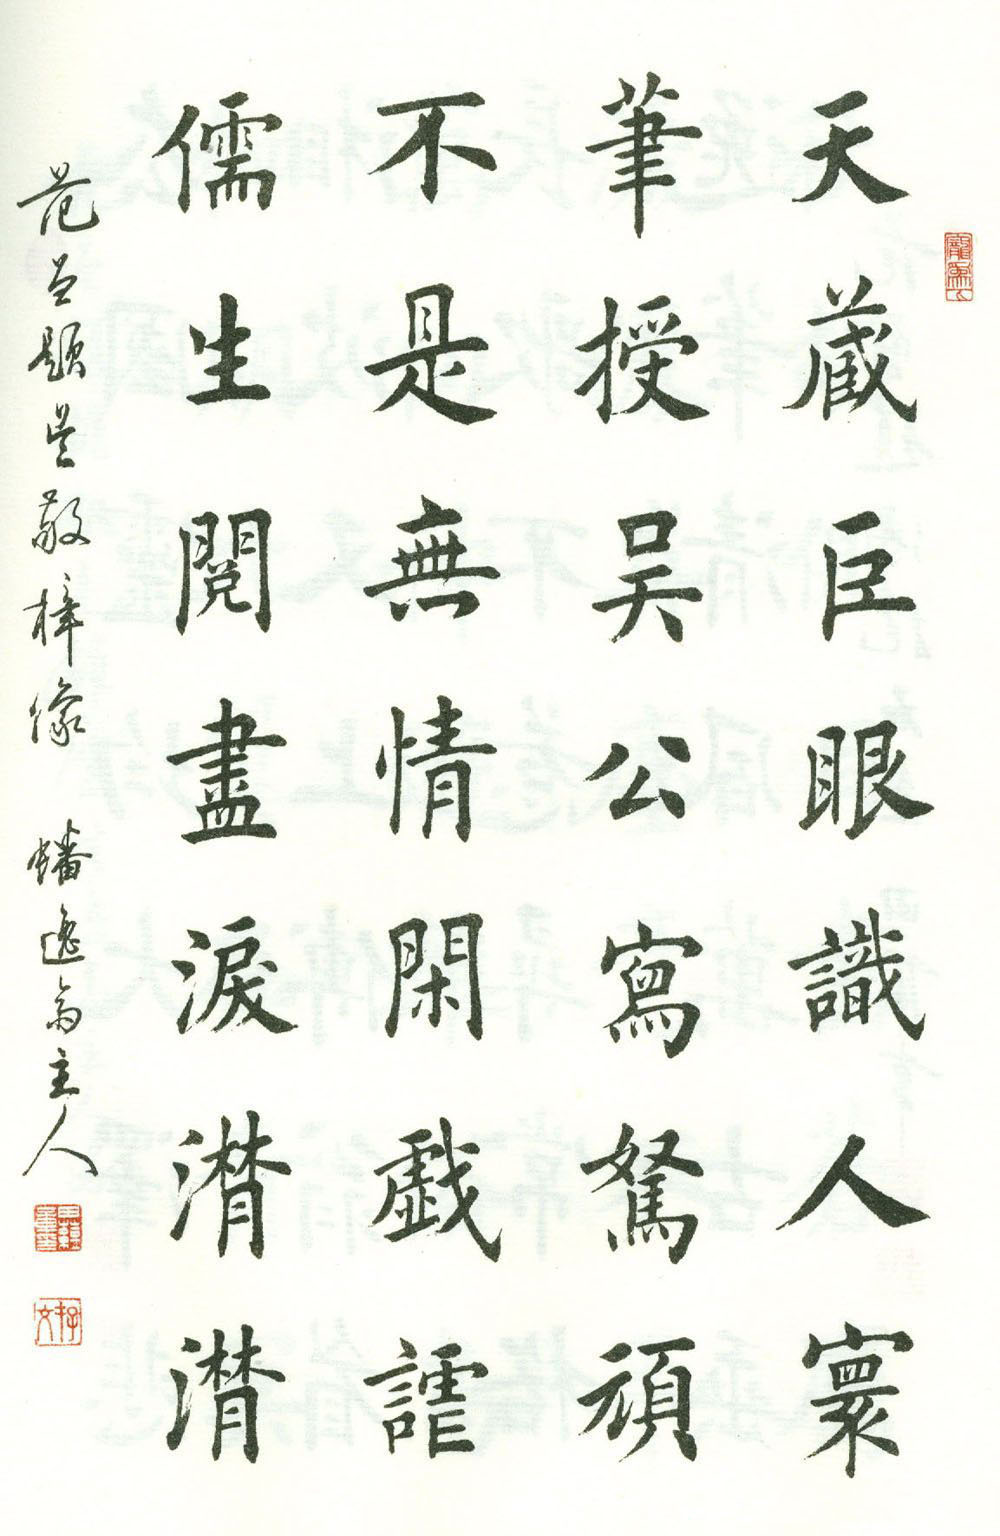 天藏巨眼識人寰
筆授吴公寫駑頑
不是無情閑戯謔
儒生閱盡淚潸潸
范曾題吴敬梓像 蟠逸斋主人